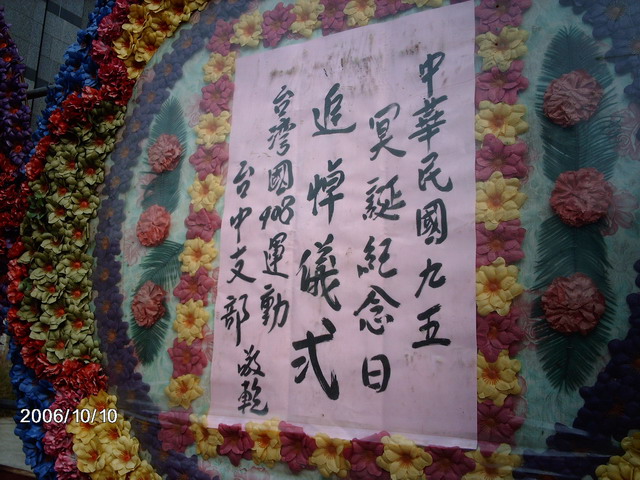 中華民國九五
冥誕紀念日
追悼儀式
台灣國908運動
台中支部 敬輓
2006/10/10